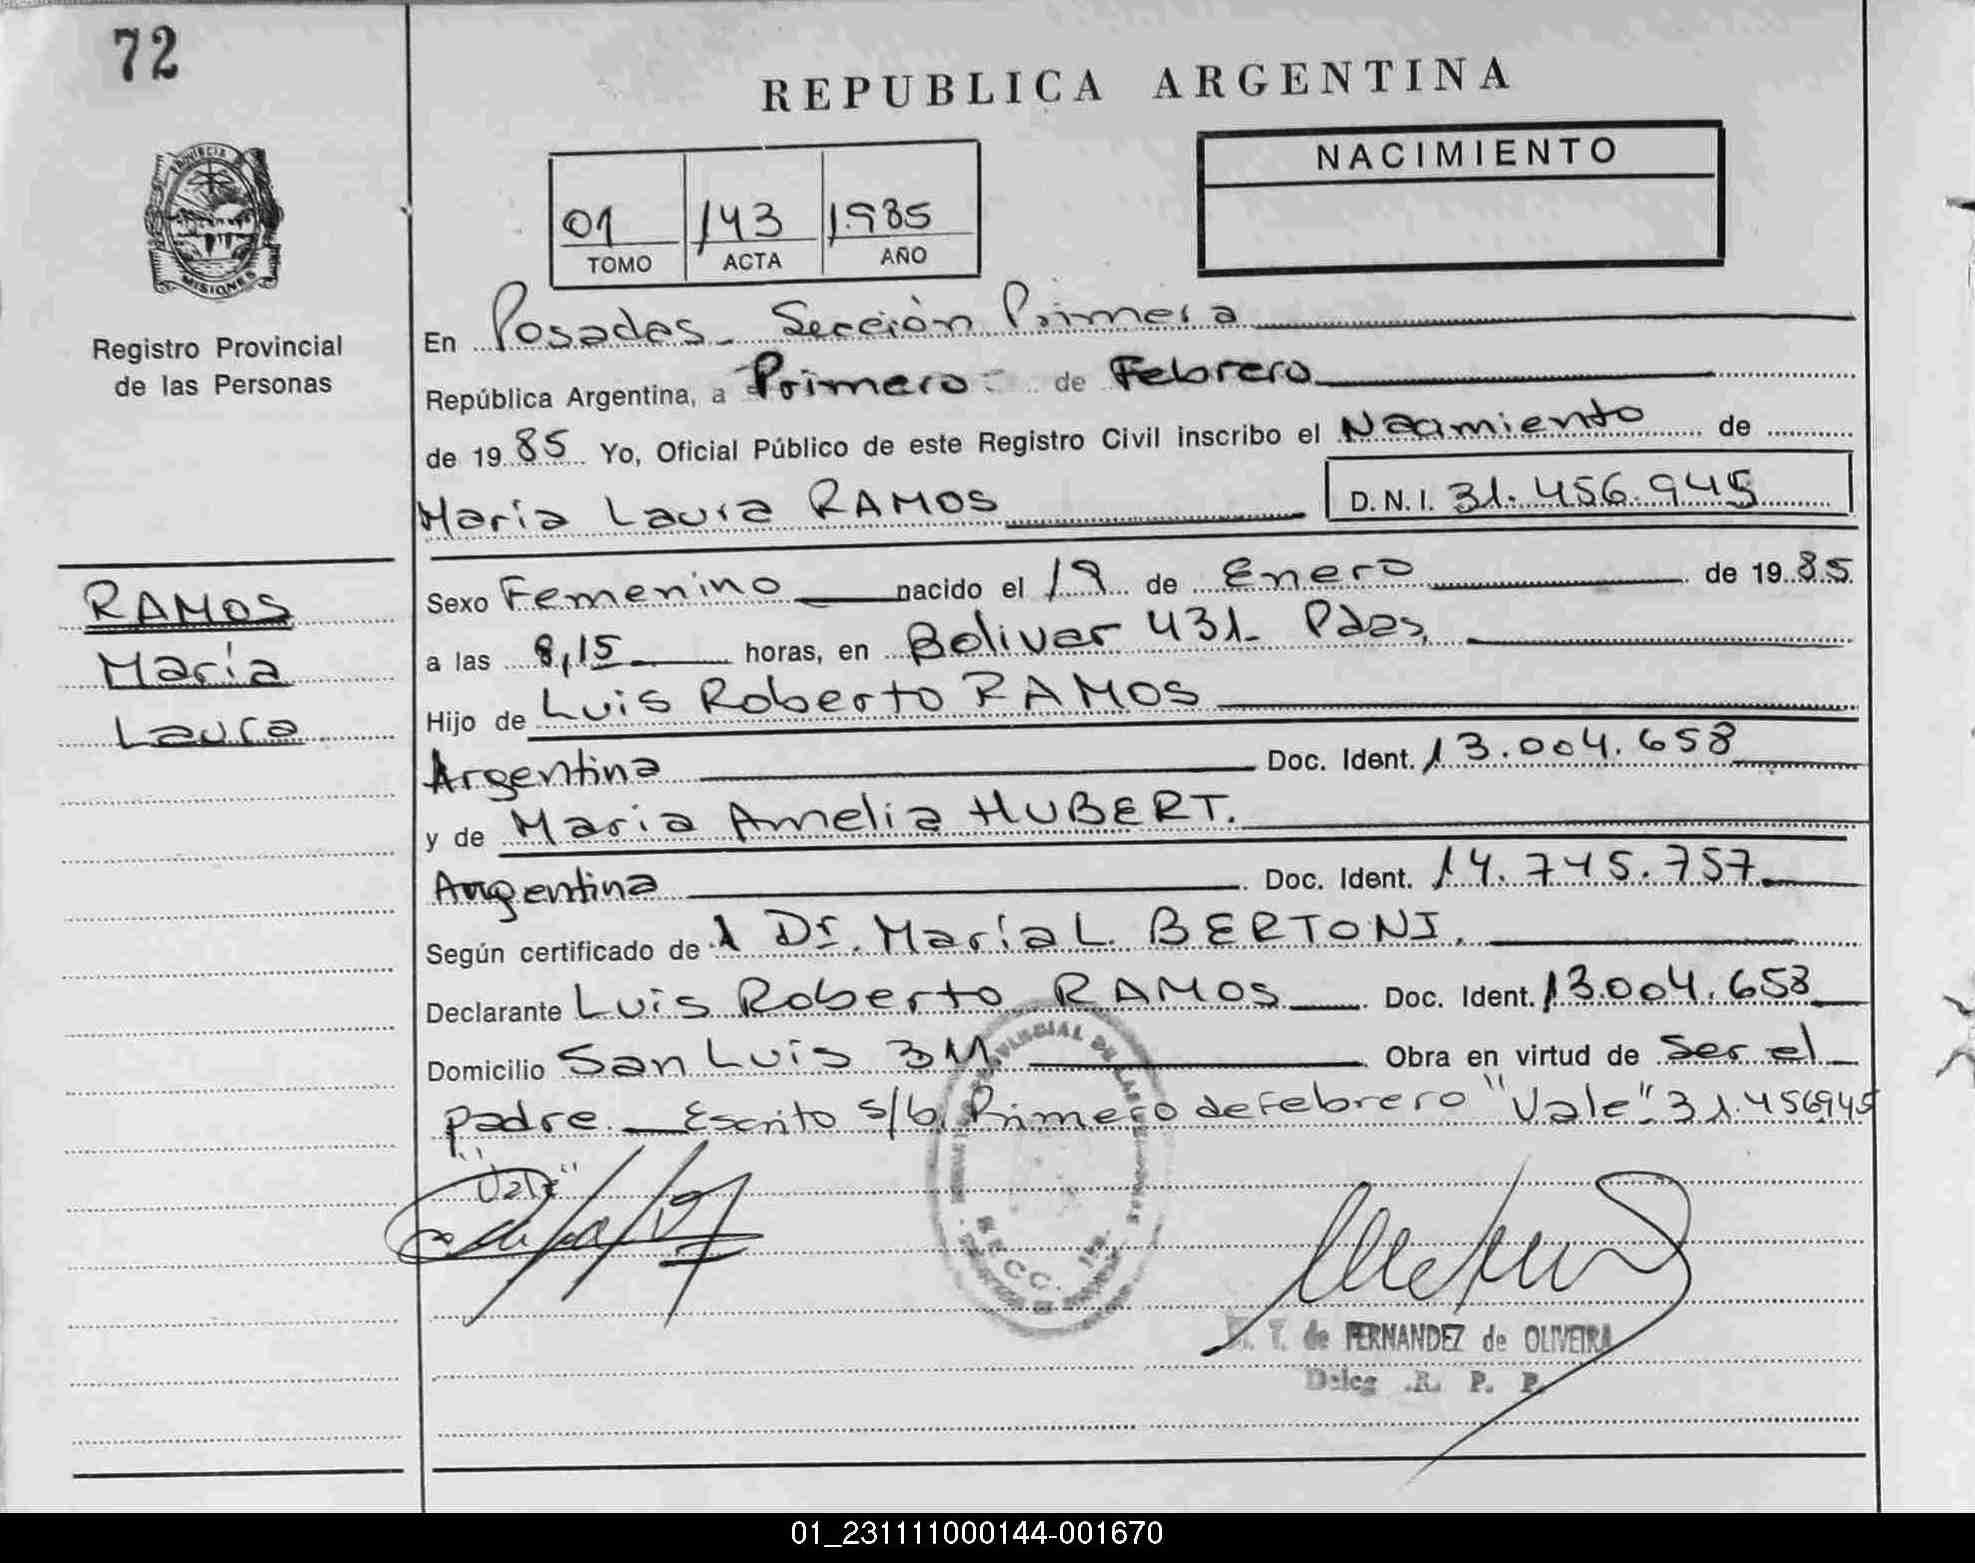 72
REPUBLICA ARGENTINA
NACIMIENTO
PROVINCIA DE
MISIONES
01 143 1985
TOMO ACTA AÑO
Registro Provincial
de las Personas
En Posadas - Sección Primera
República Argentina, a Primero de Febrero
de 1985 Yo, Oficial Público de este Registro Civil inscribo el Nacimiento de
Maria Laura RAMOS D.N.I. 31.456.945
RAMOS
María
Laura
Sexo Femenino nacido el 19 de Enero de 1985
a las 8,15 horas, en Bolivar 431- Pdas,
Hijo de Luis Roberto RAMOS
Argentina Doc. Ident. 13.004.658
y de Maria Amelia HUBERT.
Argentina Doc. Ident. 14.745.757
Según certificado de Dr. María L. BERTONI.
Declarante Luis Roberto RAMOS Doc. Ident. 13.004.658
Domicilio San Luis Obra en virtud de Ser el
padre. Escrito s/b, Primero de Febrero "Vale" 31.456945
"Vale"
de FERNANDEZ de OLIVEIRA
Deleg .R. P. P.
01_231111000144-001670